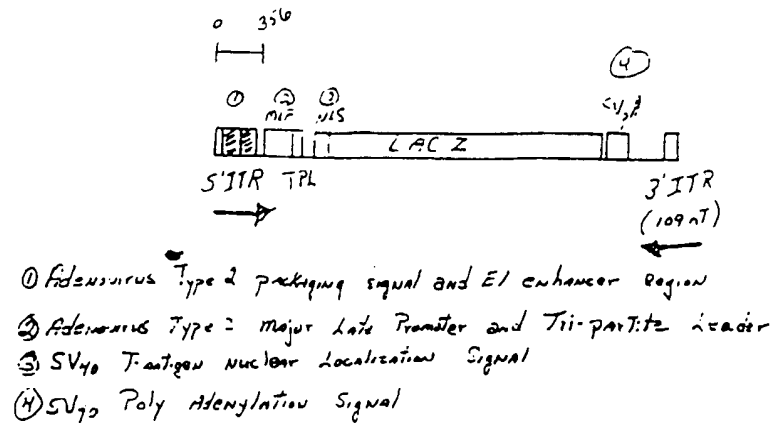 0 356
④
① ② ③
MLP NLS SV40
LAC Z
5'ITR TPL 3'ITR
(109 nT)
① Adenovirus Type 2 packaging signal and E1 enhancer Region
② Adenovirus Type 2 Major Late Promoter and Tri-partite Leader
③ SV40 T-antigen Nuclear Localization Signal
④ SV40 Poly Adenylation Signal